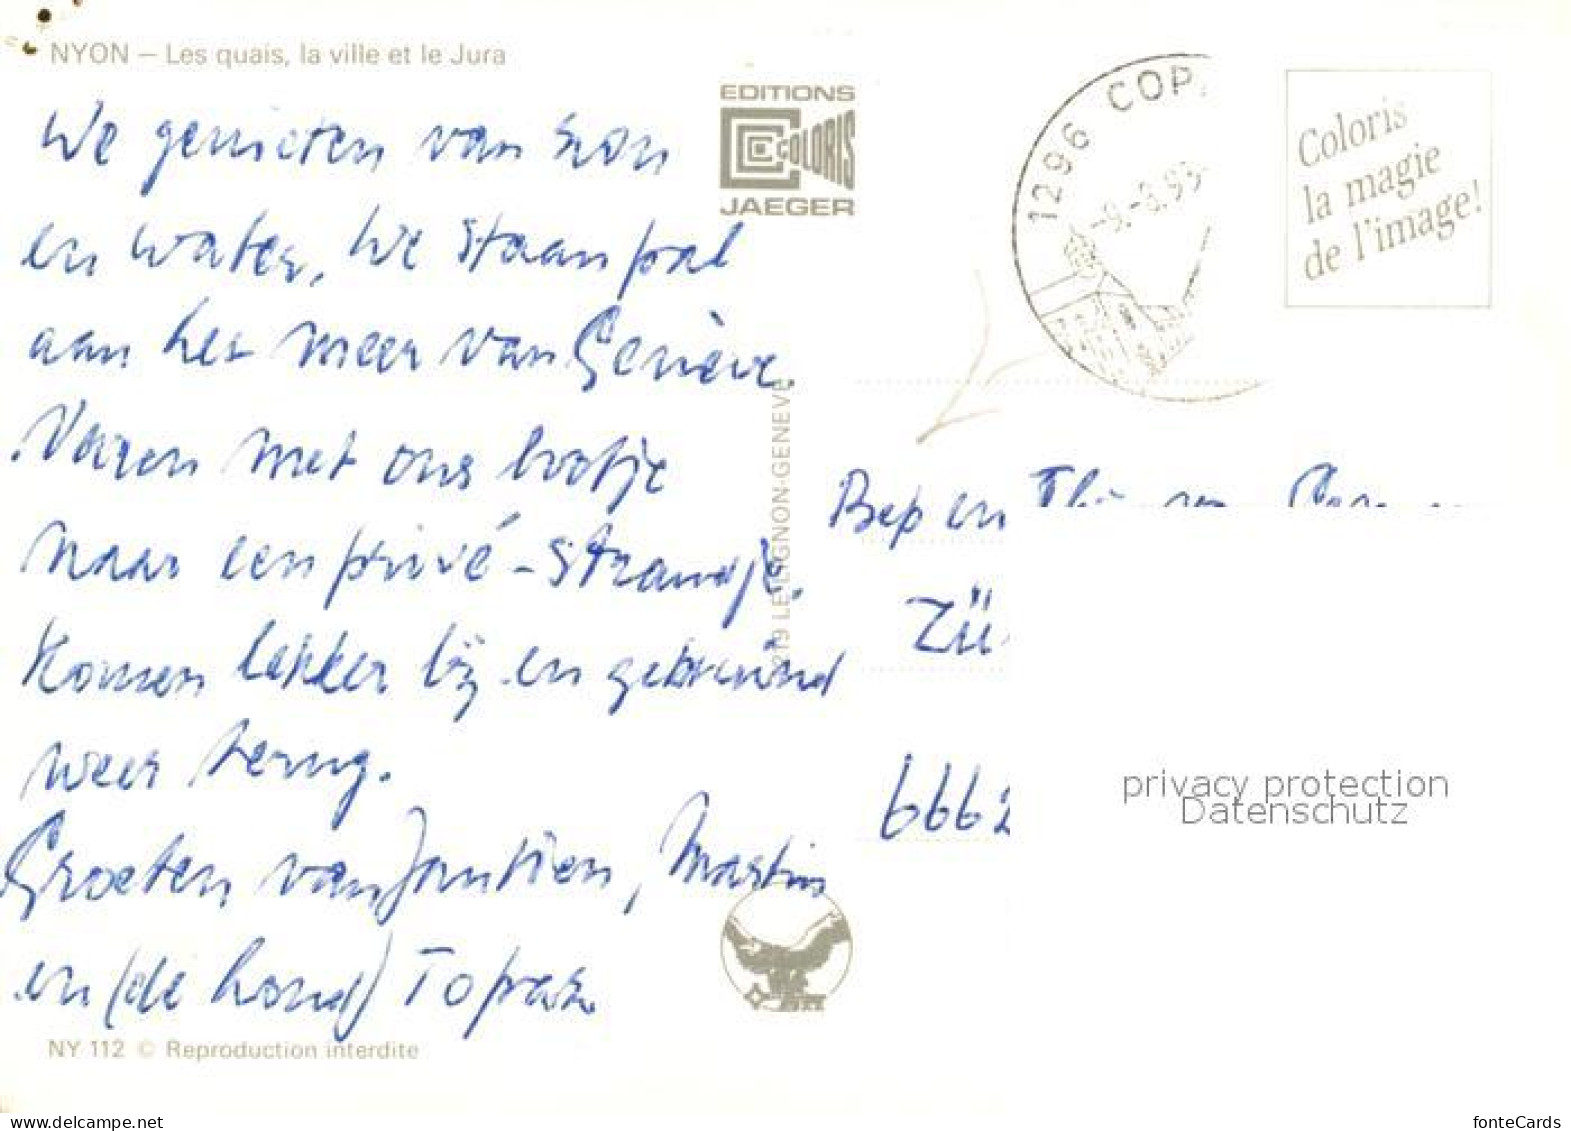 NYON — Les quais, la ville et le Jura
We genieten van zon
en water. We staan pal
aan het meer van Genève.
Varen met ons bootje
naar een privé-strandje.
Komen lekker bij en gebruind
weer terug.
Groeten van Jantien, Martin
en (de hond) Topaz.
NY 112 © Reproduction interdite
EDITIONS
COLORIS
JAEGER
1219 LE LIGNON-GENEVE
1296 COP
-9.-8.95
Coloris
la magie
de l'image!
Bep en
Zü
6662
privacy protection
Datenschutz
www.delcampe.net
fonteCards